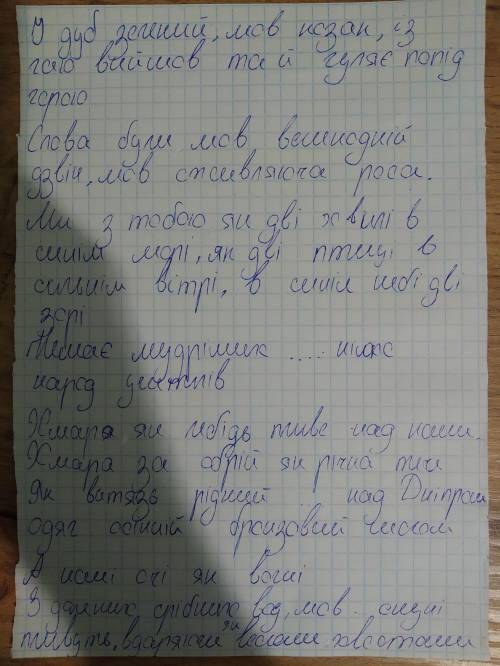 І дуб зелений, мов козак, із
гаю вийшов та й гуляє попід
горою
Слова були мов великодній
дзвін, мов оживляюча роса.
Ми з тобою як дві хвилі в
синім морі, як дві птиці в
сильнім вітрі, в синім небі дві
зорі
Немає мудріших .... ніж
народ учителів
Хмара як лебідь пливе над нами.
Хмара за обрій як річна
Як витязь рідний над Дніпром
одяг осінній бронзовий шолом
А нотмі очі як вогні
З срібних вод, мов
пливуть, вдаряючи хвостами